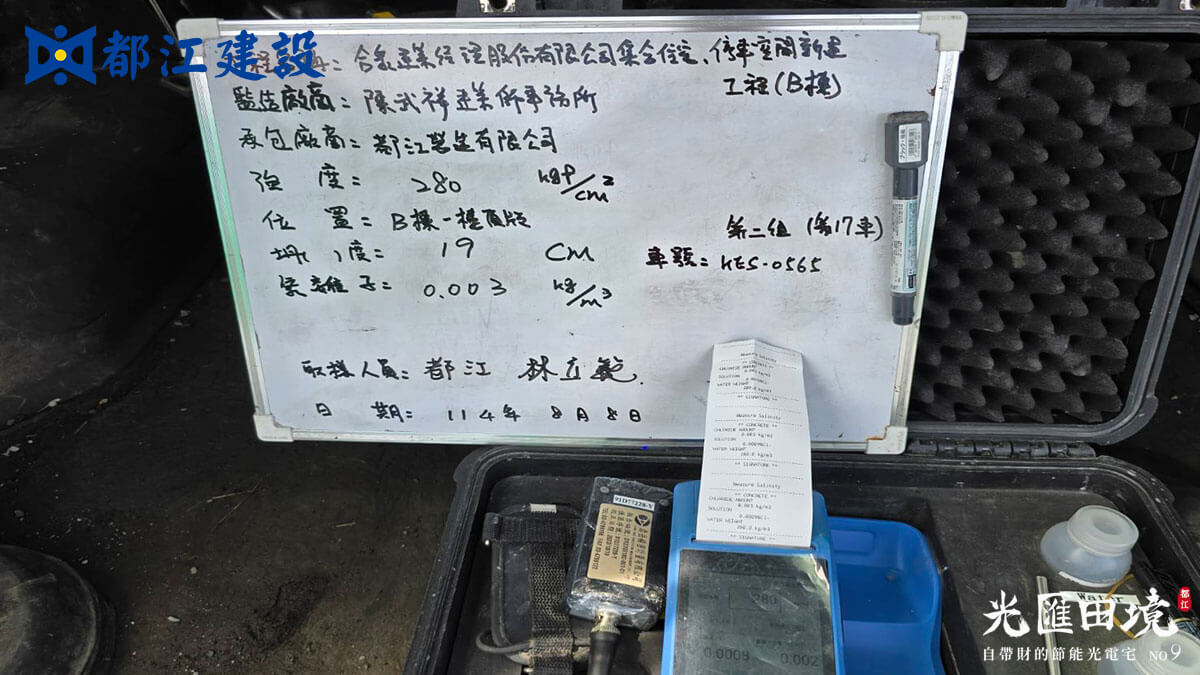 都江建設
合家建業經理股份有限公司集合住宅、停車空間新建
工程(B棟)
監造廠商：陳武祥建築師事務所
承包廠商：都江營造有限公司
強 度： 280 kgf/cm²
位 置：B棟一樓頂版
第二組 (第17車)
坍 度： 19 CM
車號：KES-0565
氯離子： 0.003 kg/m³
取樣人員：都江 林立
日 期： 114年 8月8日
Measure Salinity
** CONCRETE **
CHLORIDE AMOUNT
0.003 kg/m3
SOLUTION
WATER WEIGHT
** SIGNATURE **
Measure Salinity
** CONCRETE **
CHLORIDE AMOUNT
0.003 kg/m3
SOLUTION
0.0009%Cl-
WATER WEIGHT
** SIGNATURE **
Measure Salinity
** CONCRETE **
CHLORIDE AMOUNT
0.003 kg/m3
SOLUTION
WATER WEIGHT
** SIGNATURE **
280
0.0009 0.002
Water
光匯田境
都江
自帶財的節能光電宅 NO9